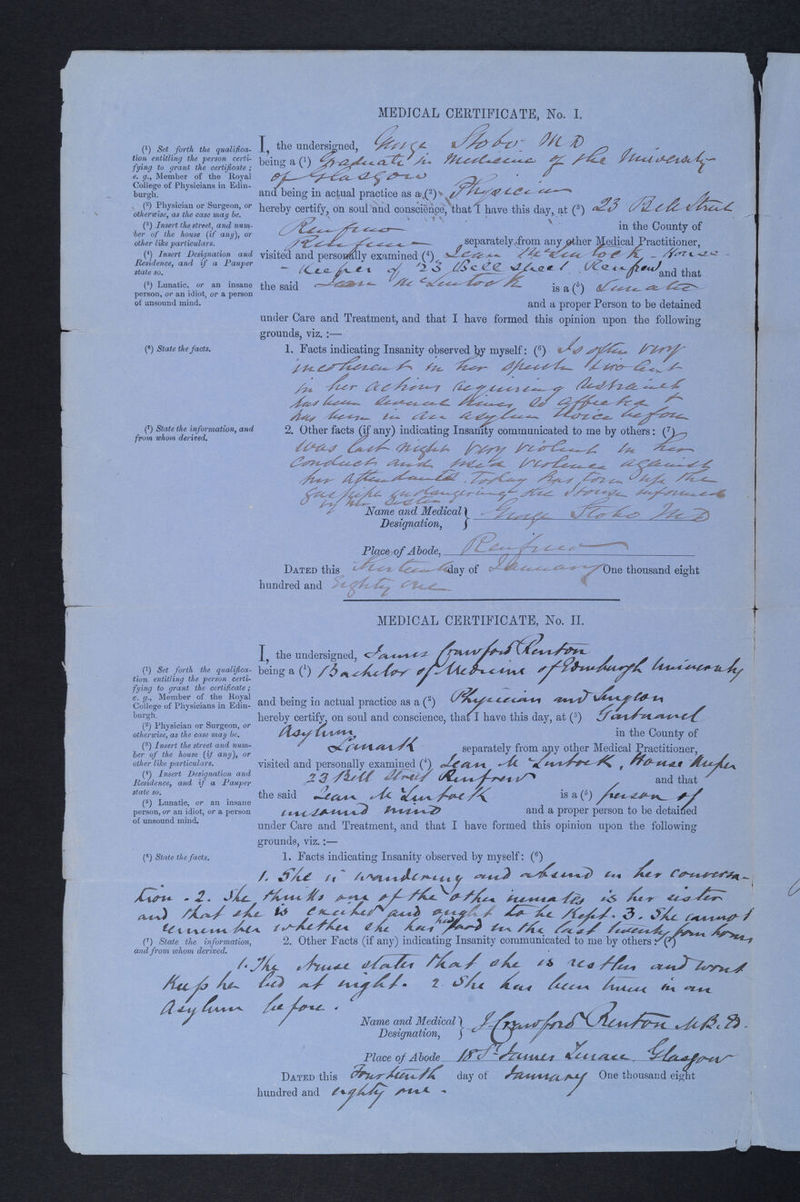 MEDICAL CERTIFICATE, No. I.
(¹) Set forth the qualifica-
tion entitling the person certi-
fying to grant the certificate;
e. g., Member of the Royal
College of Physicians in Edin-
burgh.
(²) Physician or Surgeon, or
otherwise, as the case may be.
(³) Insert the street, and num-
ber of the house (if any), or
other like particulars.
(⁴) Insert Designation and
Residence, and if a Pauper
state so.
(⁵) Lunatic, or an insane
person, or an idiot, or a person
of unsound mind.
(⁶) State the facts.
(⁷) State the information, and
from whom derived.
I, the undersigned, George Stobo M D
being a (¹) Graduate in Medicine of the University
of Glasgow
and being in actual practice as a (²) Physician
hereby certify, on soul and conscience, that I have this day, at (³) 23 Bell Street
Renfrew in the County of
Renfrew separately from any other Medical Practitioner,
visited and personally examined (⁴) Jean McLintock - House -
- Keeper of 23 Bell Street Renfrew and that
the said Jean McLintock is a (⁵) Lunatic
and a proper Person to be detained
under Care and Treatment, and that I have formed this opinion upon the following
grounds, viz. :—
1. Facts indicating Insanity observed by myself: (⁶) Is often very
incoherent in her speech & violent
in her actions requiring restraint
has been several times so affected &
has been in an asylum twice before
2. Other facts (if any) indicating Insanity communicated to me by others: (⁷)
was last night very violent in her
conduct and used violence against
her attendants. Today has torn off the
gas pipe endangering the house informed
by her sister
Name and Medical Designation, George Stobo M D
Place of Abode, Renfrew
DATED this thirteenth day of January One thousand eight
hundred and Eighty one
MEDICAL CERTIFICATE, No. II.
(¹) Set forth the qualifica-
tion entitling the person certi-
fying to grant the certificate;
e. g., Member of the Royal
College of Physicians in Edin-
burgh.
(²) Physician or Surgeon, or
otherwise, as the case may be.
(³) Insert the street and num-
ber of the house (if any), or
other like particulars.
(⁴) Insert Designation and
Residence, and if a Pauper
state so.
(⁵) Lunatic, or an insane
person, or an idiot, or a person
of unsound mind.
(⁶) State the facts.
(⁷) State the information,
and from whom derived.
I, the undersigned, James Crawford Renton
being a (¹) Bachelor of Medicine of Edinburgh University
and being in actual practice as a (²) Physician and Surgeon
hereby certify, on soul and conscience, that I have this day, at (³) Gartnavel
Asylum in the County of
Lanark separately from any other Medical Practitioner,
visited and personally examined (⁴) Jean McLintock, House keeper
23 Bell Street Renfrew and that
the said Jean McLintock is a (⁵) person of
unsound mind and a proper person to be detained
under Care and Treatment, and that I have formed this opinion upon the following
grounds, viz. :—
1. Facts indicating Insanity observed by myself: (⁶)
1. She is wandering and absurd in her conversa-
tion - 2. She thinks one of the other inmates is her sister
and that she is excited and ought to be kept. 3. She cannot
remember whether she has had food in the last twenty four hours
2. Other Facts (if any) indicating Insanity communicated to me by others: (⁷)
1. The Nurse states that she is restless and wont
keep her bed at night. 2 She has been twice in an
Asylum before.
Name and Medical Designation, J Crawford Renton M.B.
Place of Abode 18 St James Terrace. Glasgow
DATED this Fourteenth day of January One thousand eight
hundred and eighty one -